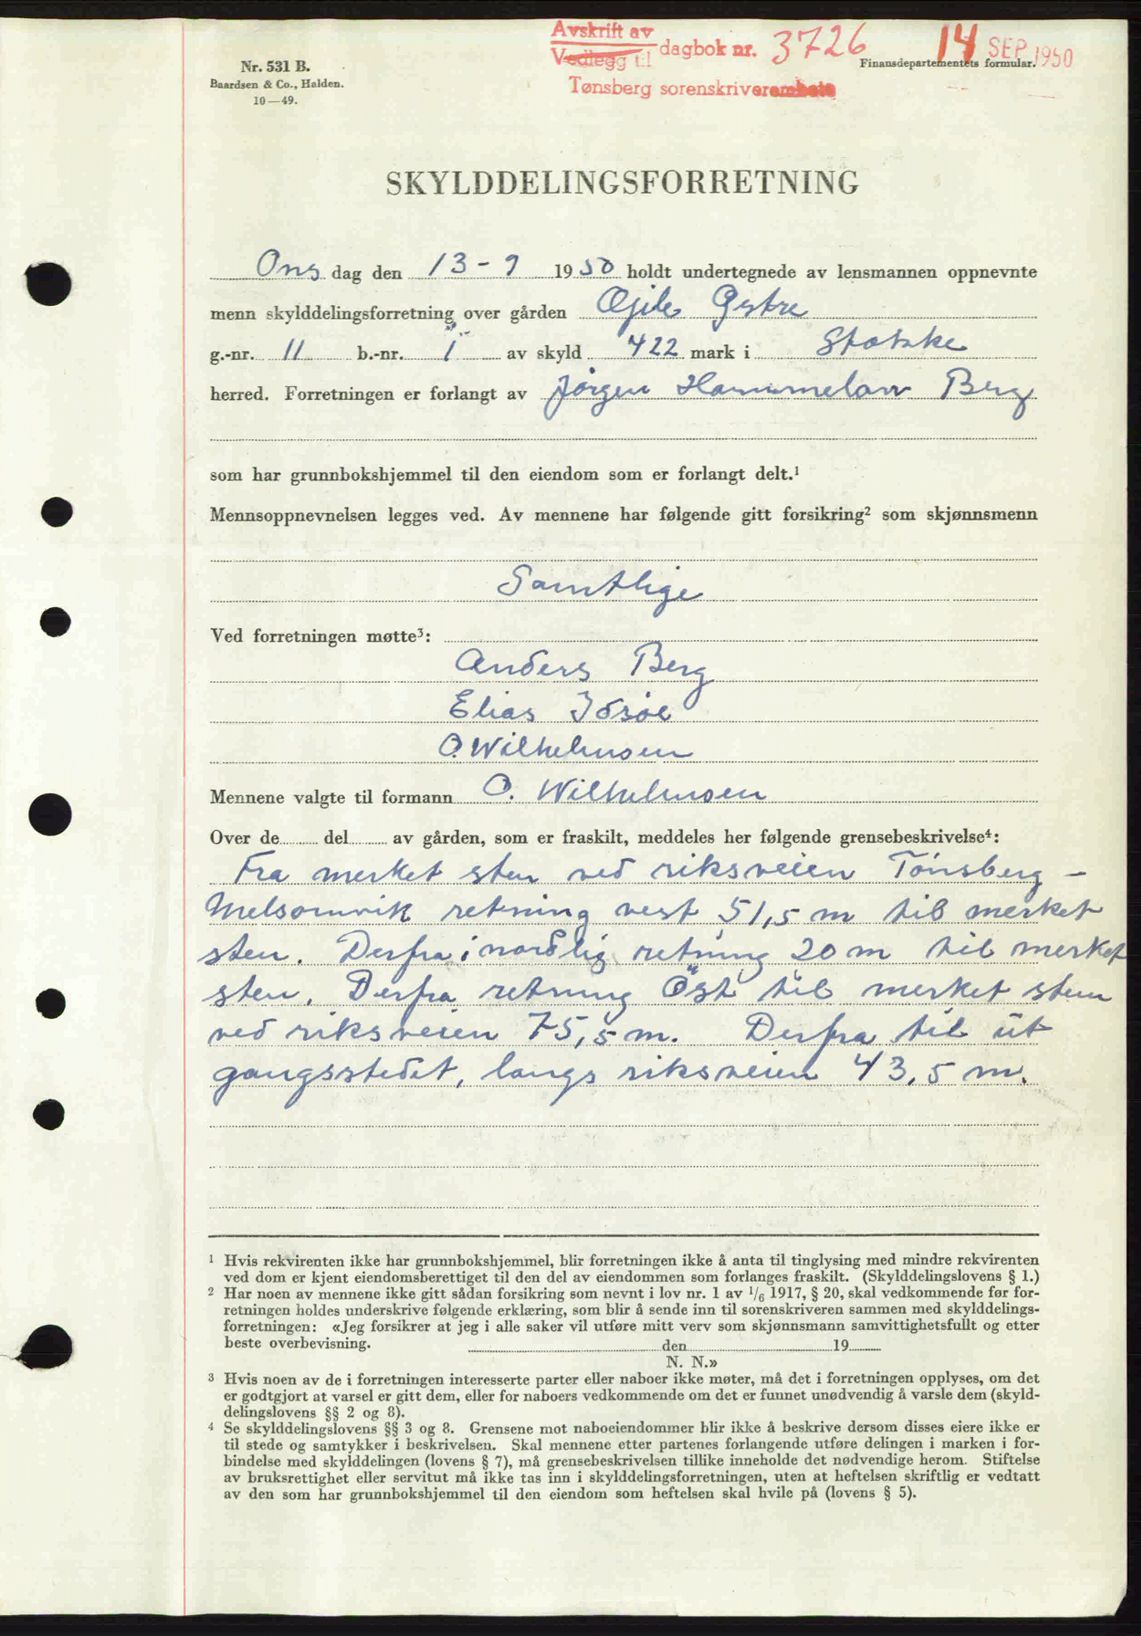 Avskrift av
Vedlegg til dagbok nr. 3726 14 SEP 1950
Finansdepartementets formular.
Tønsberg sorenskriverembete
Nr. 531 B.
Baardsen & Co., Halden.
10—49.
SKYLDDELINGSFORRETNING
Ons dag den 13-9 1950 holdt undertegnede av lensmannen oppnevnte
menn skylddelingsforretning over gården Gjile Østre
g.-nr. 11 b.-nr. 1 av skyld 422 mark i Stokke
herred. Forretningen er forlangt av Jørgen Hammelow Berg
som har grunnbokshjemmel til den eiendom som er forlangt delt.¹
Mennsoppnevnelsen legges ved. Av mennene har følgende gitt forsikring² som skjønnsmenn
Samtlige
Ved forretningen møtte³:
Anders Berg
Elias
O. Wilhelmsen
Mennene valgte til formann O. Wilhelmsen
Over de del av gården, som er fraskilt, meddeles her følgende grensebeskrivelse⁴:
Fra merket sten ved riksveien Tønsberg -
Melsomvik retning vest 51,5 m til merket
sten. Derfra i nordlig retning 20 m til merket
sten. Derfra retning Öst til merket sten
ved riksveien 75,5 m. Derfra til ut
gangsstedet, langs riksveien 43,5 m.
¹ Hvis rekvirenten ikke har grunnbokshjemmel, blir forretningen ikke å anta til tinglysing med mindre rekvirenten
ved dom er kjent eiendomsberettiget til den del av eiendommen som forlanges fraskilt. (Skylddelingslovens § 1.)
² Har noen av mennene ikke gitt sådan forsikring som nevnt i lov nr. 1 av 1/6 1917, § 20, skal vedkommende før for-
retningen holdes underskrive følgende erklæring, som blir å sende inn til sorenskriveren sammen med skylddelings-
forretningen: «Jeg forsikrer at jeg i alle saker vil utføre mitt verv som skjønnsmann samvittighetsfullt og etter
beste overbevisning. den 19
N. N.»
³ Hvis noen av de i forretningen interesserte parter eller naboer ikke møter, må det i forretningen opplyses, om det
er godtgjort at varsel er gitt dem, eller for naboers vedkommende om det er funnet unødvendig å varsle dem (skyld-
delingslovens §§ 2 og 8).
⁴ Se skylddelingslovens §§ 3 og 8. Grensene mot naboeiendommer blir ikke å beskrive dersom disses eiere ikke er
til stede og samtykker i beskrivelsen. Skal mennene etter partenes forlangende utføre delingen i marken i for-
bindelse med skylddelingen (lovens § 7), må grensebeskrivelsen tillike inneholde det nødvendige herom. Stiftelse
av bruksrettighet eller servitut må ikke tas inn i skylddelingsforretningen, uten at heftelsen skriftlig er vedtatt
av den som har grunnbokshjemmel til den eiendom som heftelsen skal hvile på (lovens § 5).